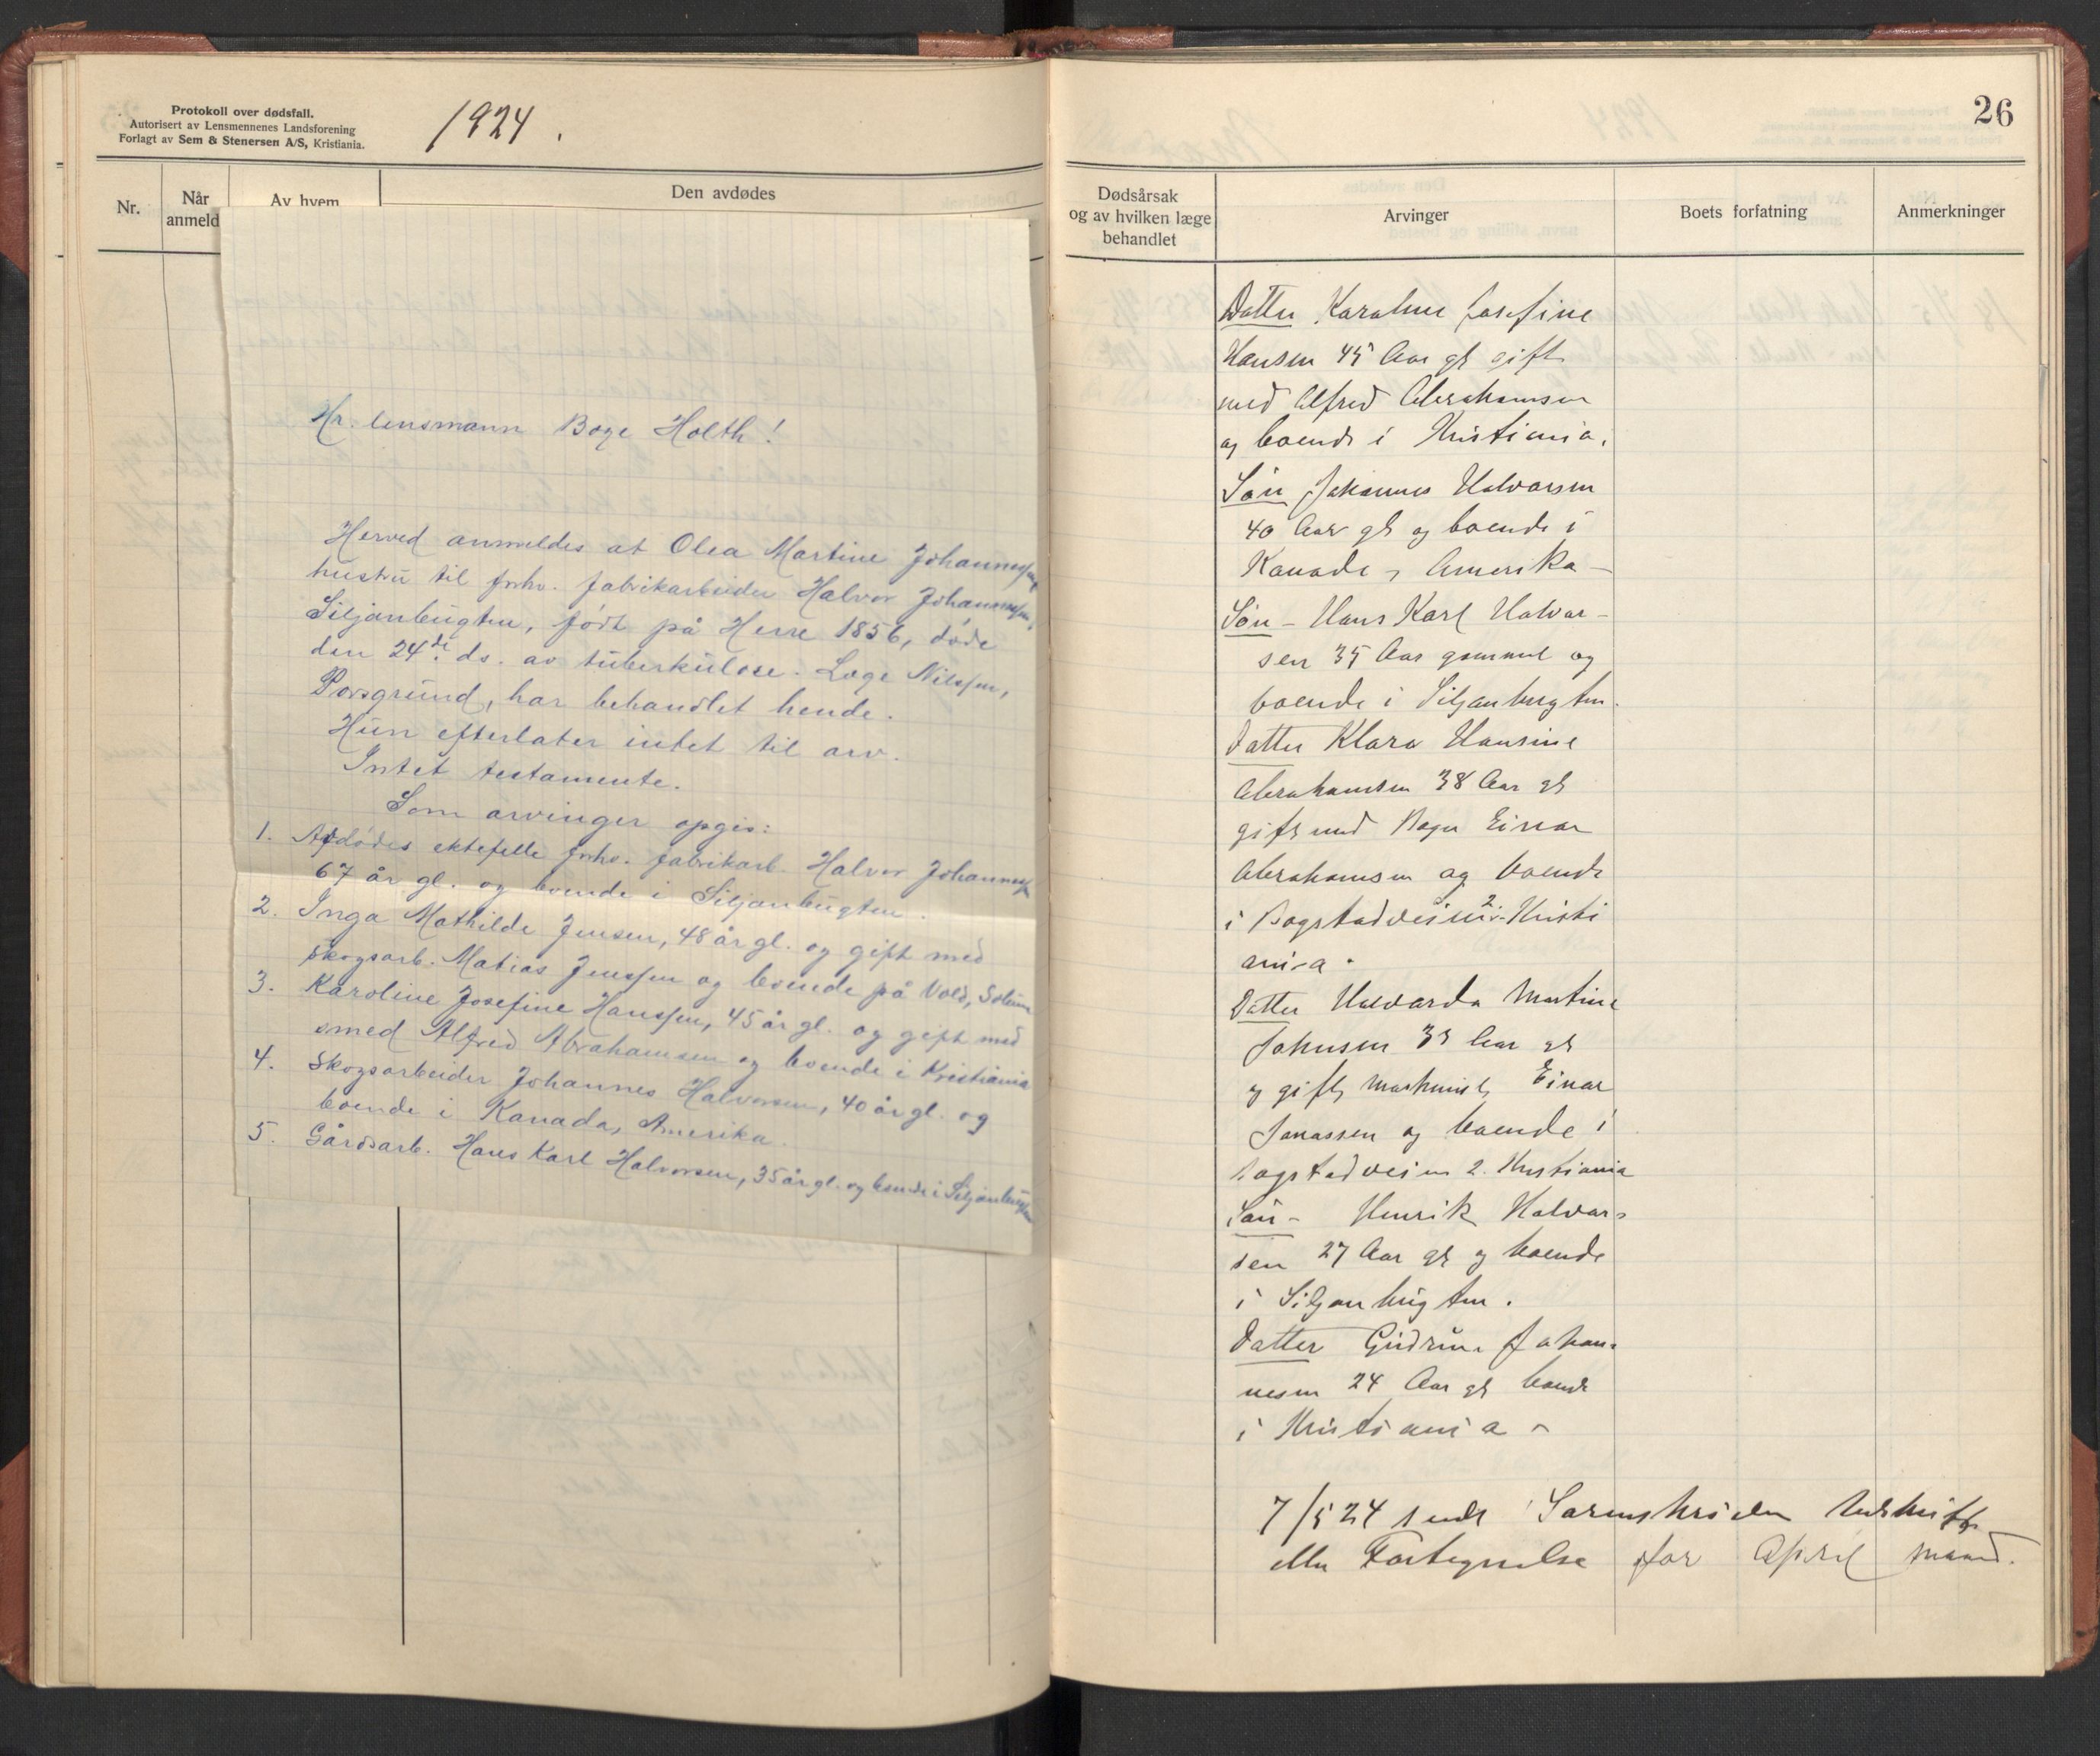 Protokoll over dødsfall.
Autorisert av Lensmennenes Landsforening
Forlagt av Sem & Stenersen A/S, Kristiania.
1924.
Nr.
Når
anmeld
Av hvem
Den avdødes
Hr. lensmann Boye Holth!
Herved anmeldes at Olea Martine Johannessen,
hustru til fhv. fabrikarbeider Halvor Johannessen,
Siljanbugten, født på Herre 1856, døde
den 24de ds. av tuberkulose. Læge Nilssen,
Porsgrund, har behandlet hende.
Hun efterlater intet til arv.
Intet testamente.
Som arvinger opgis:
1. Avdødes ektefelle fhv. fabrikarb. Halvor Johannessen
67 år gl. og boende i Siljanbugten.
2. Inga Mathilde Jensen, 48 år gl. og gift med
skogsarb. Matias Jenssen og boende på Vold, Solum
3. Karoline Josefine Hanssen, 45 år gl. og gift med
smed Alfred Abrahamsen og boende i Kristiania
4. Skogsarbeider Johannes Halvorsen, 40 år gl. og
boende i Kanada, Amerika.
5. Gårdsarb. Hans Karl Halvorsen, 35 år gl. og boende i Siljanbugten
26
Dødsårsak
og av hvilken læge
behandlet
Arvinger
Boets forfatning
Anmerkninger
Datter Karoline Josefine
Hansen 45 Aar gl gift
med Alfred Abrahamsen
og boende i Kristiania.
Søn Johannes Halvorsen
40 Aar gl og boende i
Kanada, Amerika -
Søn - Hans Karl Halvor-
sen 35 Aar gammel og
boende i Siljanbugten.
Datter Klara Hansine
Abrahamsen 38 Aar gl
gift med Einar
Abrahamsen og boende
i Bogstadveien 2. Kristi
ania.
Datter Halvarda Martine
Johnsen Aar gl
og gift maskinist Einar
Jonassen og boende i
Bogstadveien 2. Kristiania
Søn - Henrik Halvor-
sen 27 Aar gl og boende
i Siljanbugten.
Datter Gudrun Johan-
nesen 24 Aar gl boende
i Kristiania -
7/5 24 sendt Sorenskriveren Utskrift
eller Fortegnelse for April maaned.